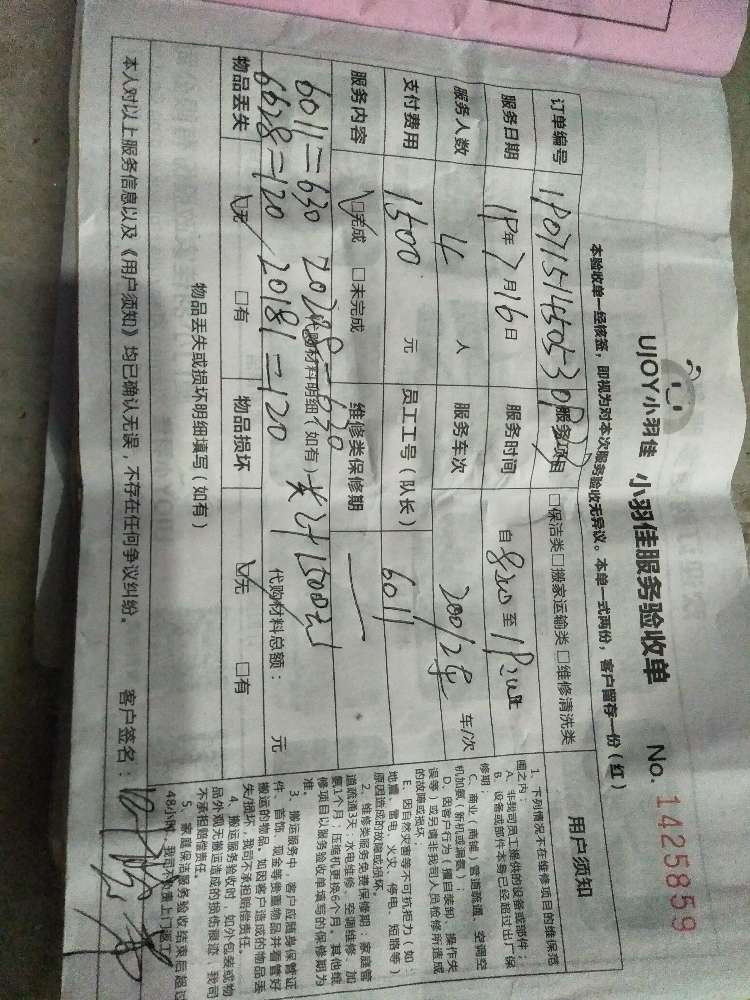 UJOY小羽佳 小羽佳服务验收单 No. 1425859
本验收单一经核签，即视为对本次服务验收无异议。本单一式两份，客户留存一份（红）
订单编号 服务项目 □保洁类□搬家运输类□维修清洗类
服务日期 19年7月16日 服务时间 自 至
服务人数 4 人 服务车次 车/次
支付费用 1500 元 员工工号（队长） 6011
服务内容 □完成 □未完成 维修类保修期 —
6011=630 代购材料明细（如有） 共计1500元 代购材料总额： 元
6628=120 20181=120
物品丢失 □无 □有 物品损坏 □无 □有
物品丢失或损坏明细填写（如有）
本人对以上服务信息以及《用户须知》均已确认无误，不存在任何争议纠纷。 客户签名：
用户须知
1、下列情况不在维修项目的维保范
围之内：
A、非我司员工提供的设备或部件；
B、设备或部件本身已经超过出厂保
修期；
C、商业（商铺）管道疏通、空调空
机加氨（新机或漏氨）；
D、因客户行为（擅自装卸、操作失
误等）或另请非我司人员检修所造成
的故障或损坏；
E、因自然灾害等不可抗拒力（如：
地震、雷电、火灾、停电、短路等）
原因造成的故障或损坏。
2、维修类服务免费保修期：家庭管
道疏通3天；水电维修、空调维修、加
氨1个月；压缩机更换6个月，其他维
修项目以服务验收单填写的保修期为
准。
3、搬运服务中，客户应随身保管证
件、首饰、现金等贵重物品并看管好
搬运的物品，如因客户造成的物品丢
失/损坏，我司不承担赔偿责任。
4、搬运服务验收时，如外包装或物
品外观无搬运造成的损伤痕迹，我司
不承担赔偿责任。
5、家庭保洁服务验收结束后超过
48小时，我司不负责上门返工